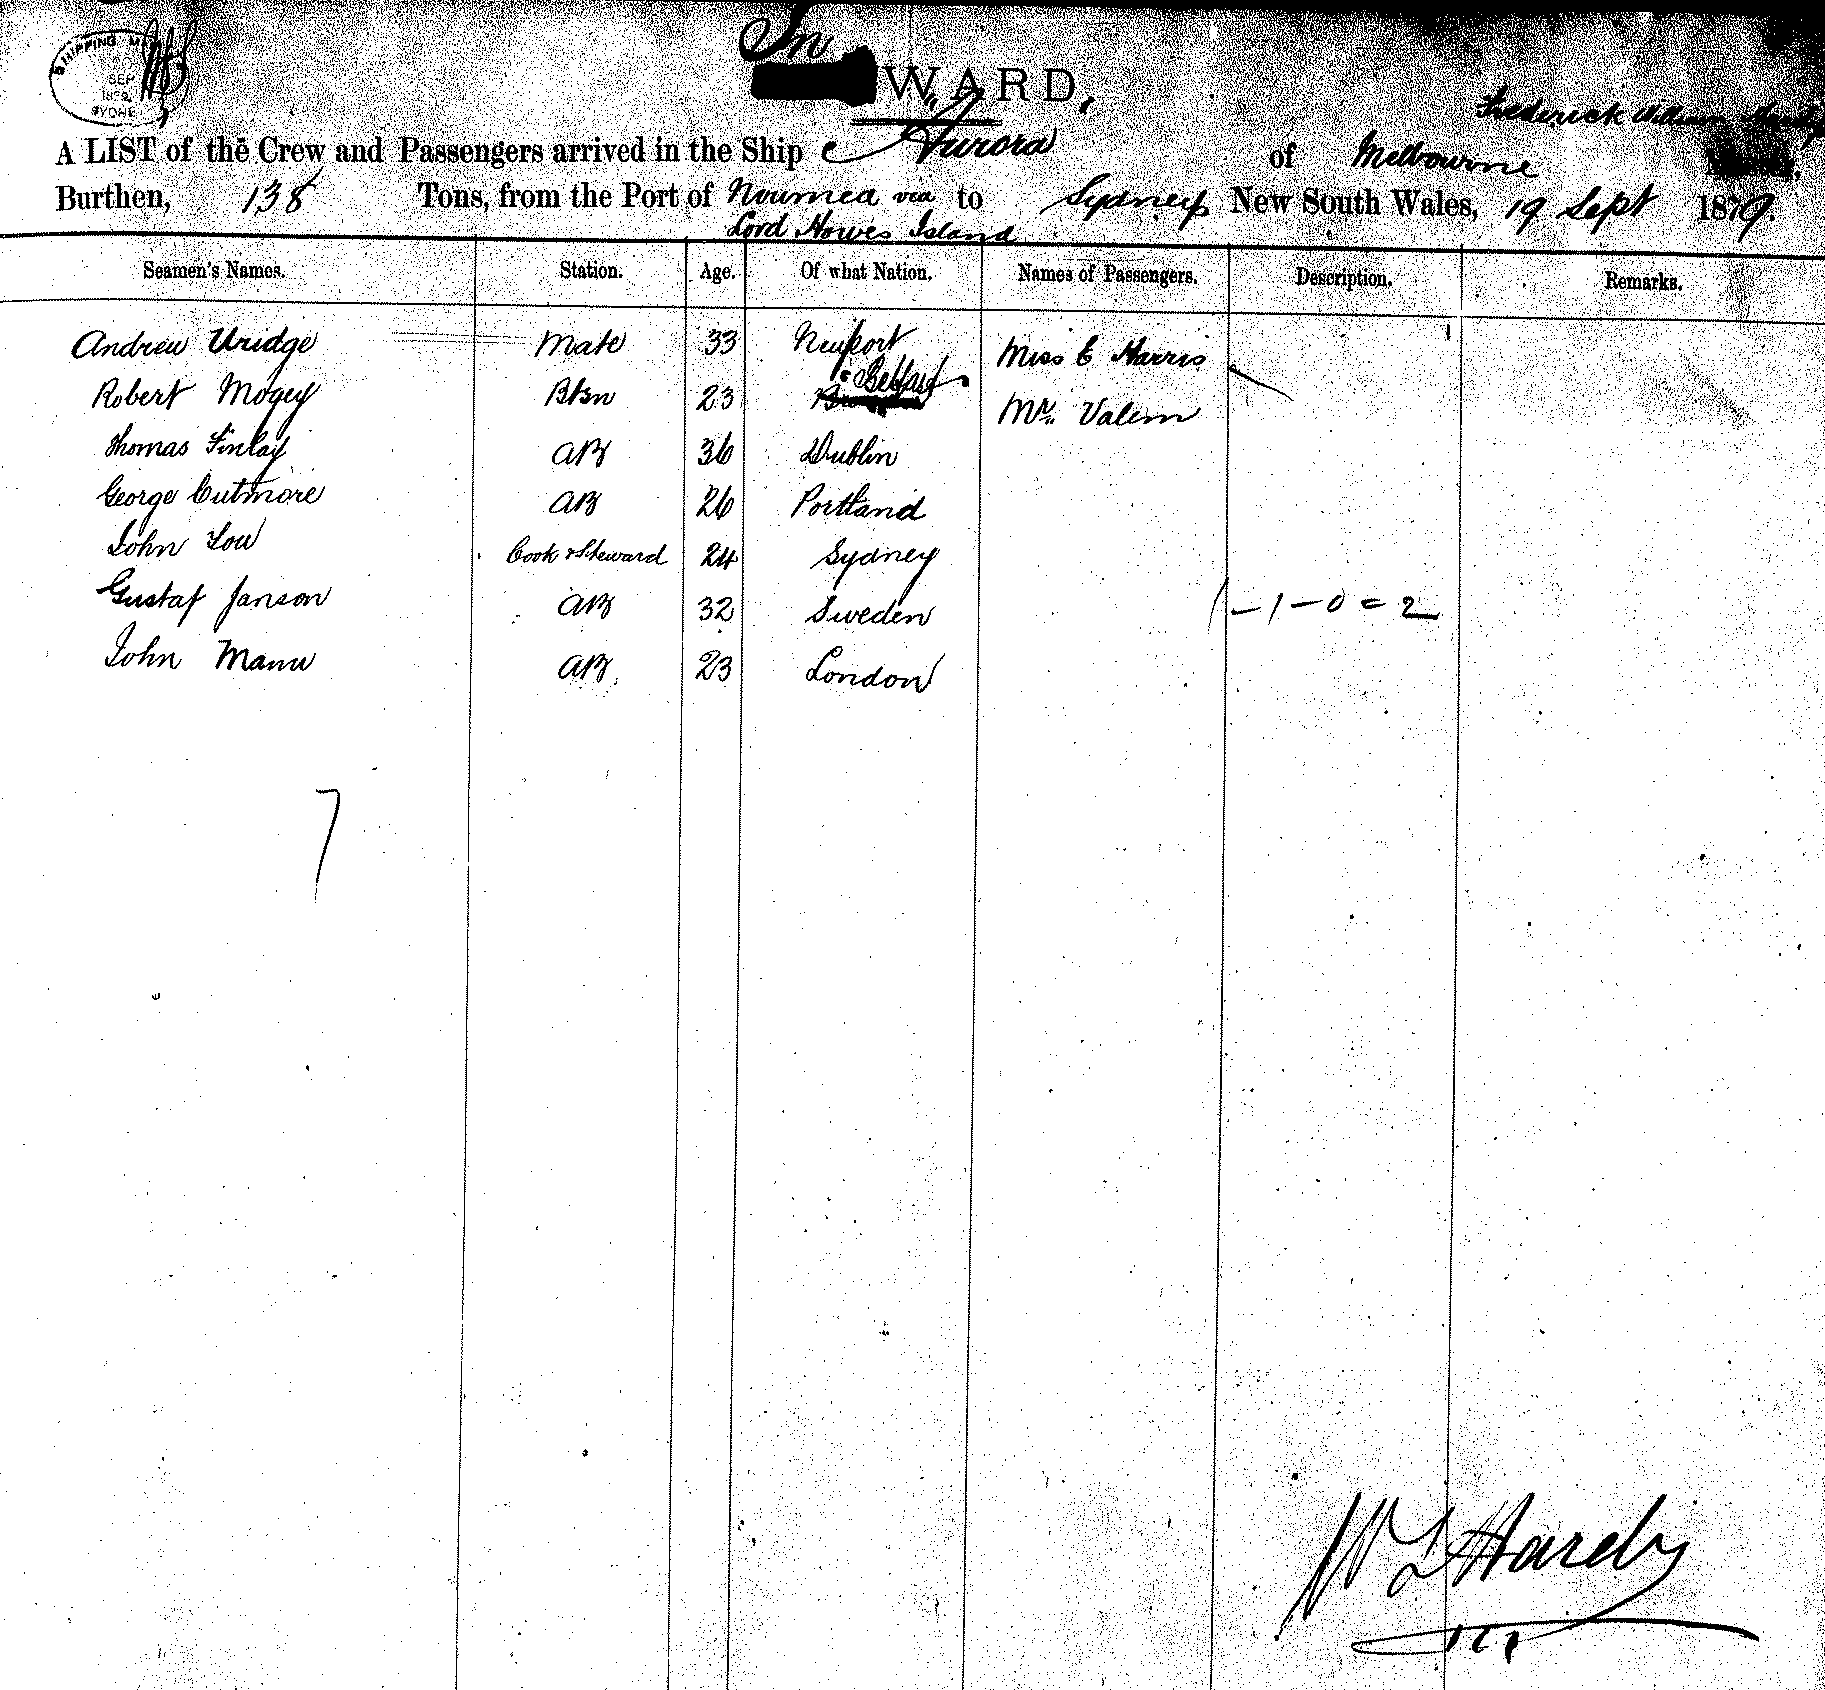 SHIPPING
SEP
In WARD.
Frederick William Hardy
A LIST of the Crew and Passengers arrived in the Ship Aurora of Melbourne
Burthen, 138 Tons, from the Port of Noumea via to Sydney New South Wales, 19 Sept 1879.
Lord Howes Island
Seamen's Names. Station. Age. Of what Nation. Names of Passengers. Description. Remarks.
Andrew Uridge Mate 33 Newport Miss E Harris
Robert Mogey BSn 23 Belfast Mr. Valem
Thomas Finlay AB 36 Dublin
George Cutmore AB 26 Portland
John Low Cook & Steward 24 Sydney
Gustaf Janson AB 32 Sweden 1 - 1 - 0 = 2
John Mann AB 23 London
7
Hardy